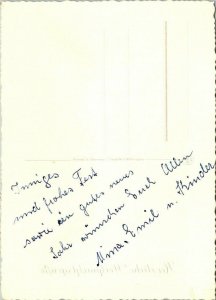 Inniges
und frohes Fest
sowie ein gutes neues
Jahr wünschen Euch Allen
Nina, Emil u. Kinder